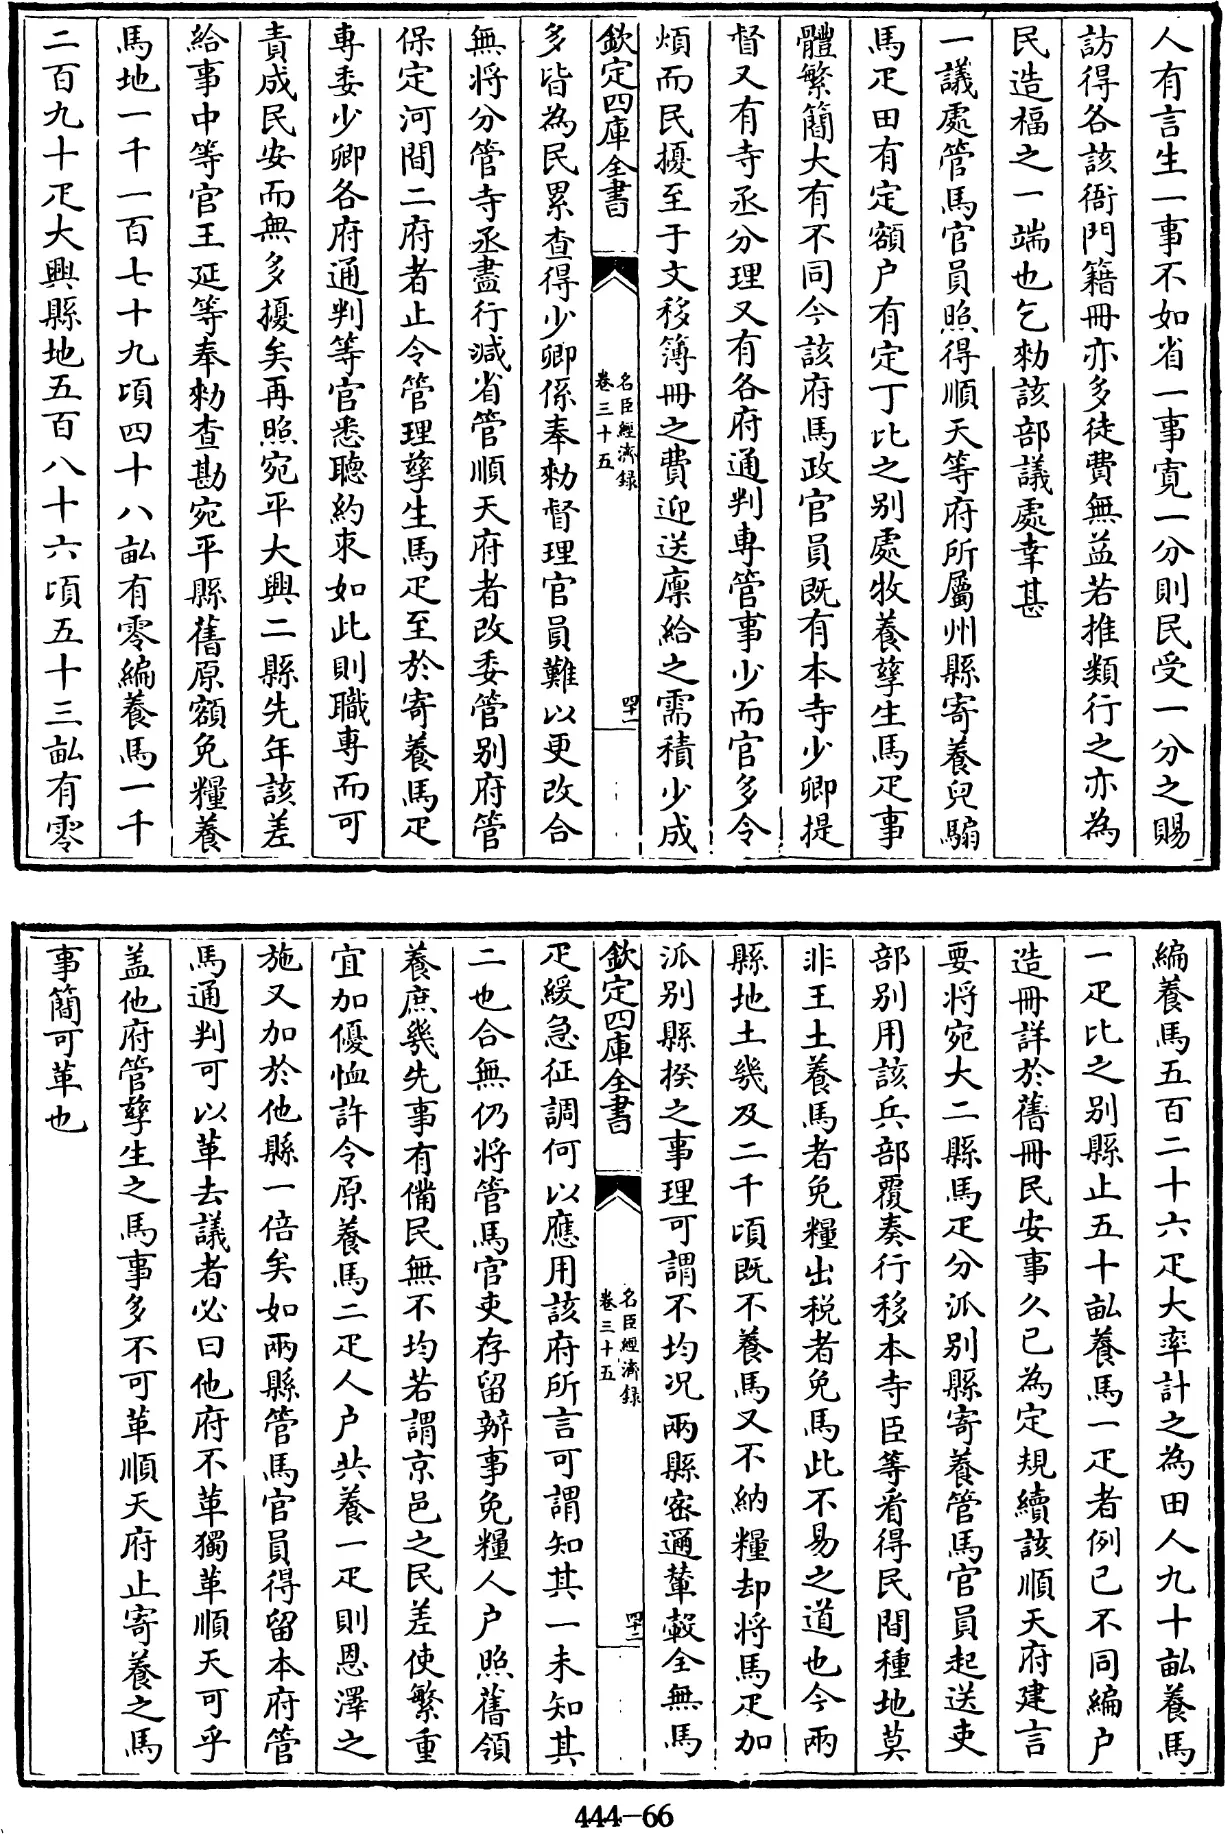 人有言生一事不如省一事寛一分則民受一分之賜
訪得各該衙門籍冊亦多徒費無益若推類行之亦為
民造福之一端也乞勅該部議處幸甚
一議處管馬官員照得順天等府所屬州縣寄養兒騸
馬疋田有定額户有定丁比之别處牧養孳生馬疋事
體繁簡大有不同今該府馬政官員既有本寺少卿提
督又有寺丞分理又有各府通判専管事少而官多令
煩而民擾至于文移簿冊之費迎送廪給之需積少成
欽定四庫全書
名臣經濟録
卷三十五
四十一
多皆為民累查得少卿係奉勅督理官員難以更改合
無將分管寺丞盡行減省管順天府者改委管别府管
保定河間二府者止令管理孳生馬疋至於寄養馬疋
専委少卿各府通判等官悉聴約束如此則職専而可
責成民安而無多擾矣再照宛平大興二縣先年該差
給事中等官王延等奉勅查勘宛平縣舊原額免糧養
馬地一千一百七十九頃四十八畝有零編養馬一千
二百九十疋大興縣地五百八十六頃五十三畝有零
編養馬五百二十六疋大率計之為田人九十畝養馬
一疋比之别縣止五十畝養馬一疋者例已不同編户
造冊詳於舊冊民安事久已為定規續該順天府建言
要將宛大二縣馬疋分派别縣寄養管馬官員起送吏
部别用該兵部覆奏行移本寺臣等看得民間種地莫
非王土養馬者免糧出税者免馬此不易之道也今兩
縣地土幾及二千頃既不養馬又不納糧却將馬疋加
派别縣揆之事理可謂不均况兩縣密邇輦轂全無馬
欽定四庫全書
名臣經濟録
卷三十五
四十二
疋緩急征調何以應用該府所言可謂知其一未知其
二也合無仍將管馬官吏存留辦事免糧人户照舊領
養庶幾先事有備民無不均若謂京邑之民差使繁重
宜加優恤許令原養馬二疋人户共養一疋則恩澤之
施又加於他縣一倍矣如兩縣管馬官員得留本府管
馬通判可以革去議者必曰他府不革獨革順天可乎
盖他府管孳生之馬事多不可革順天府止寄養之馬
事簡可革也
444-66